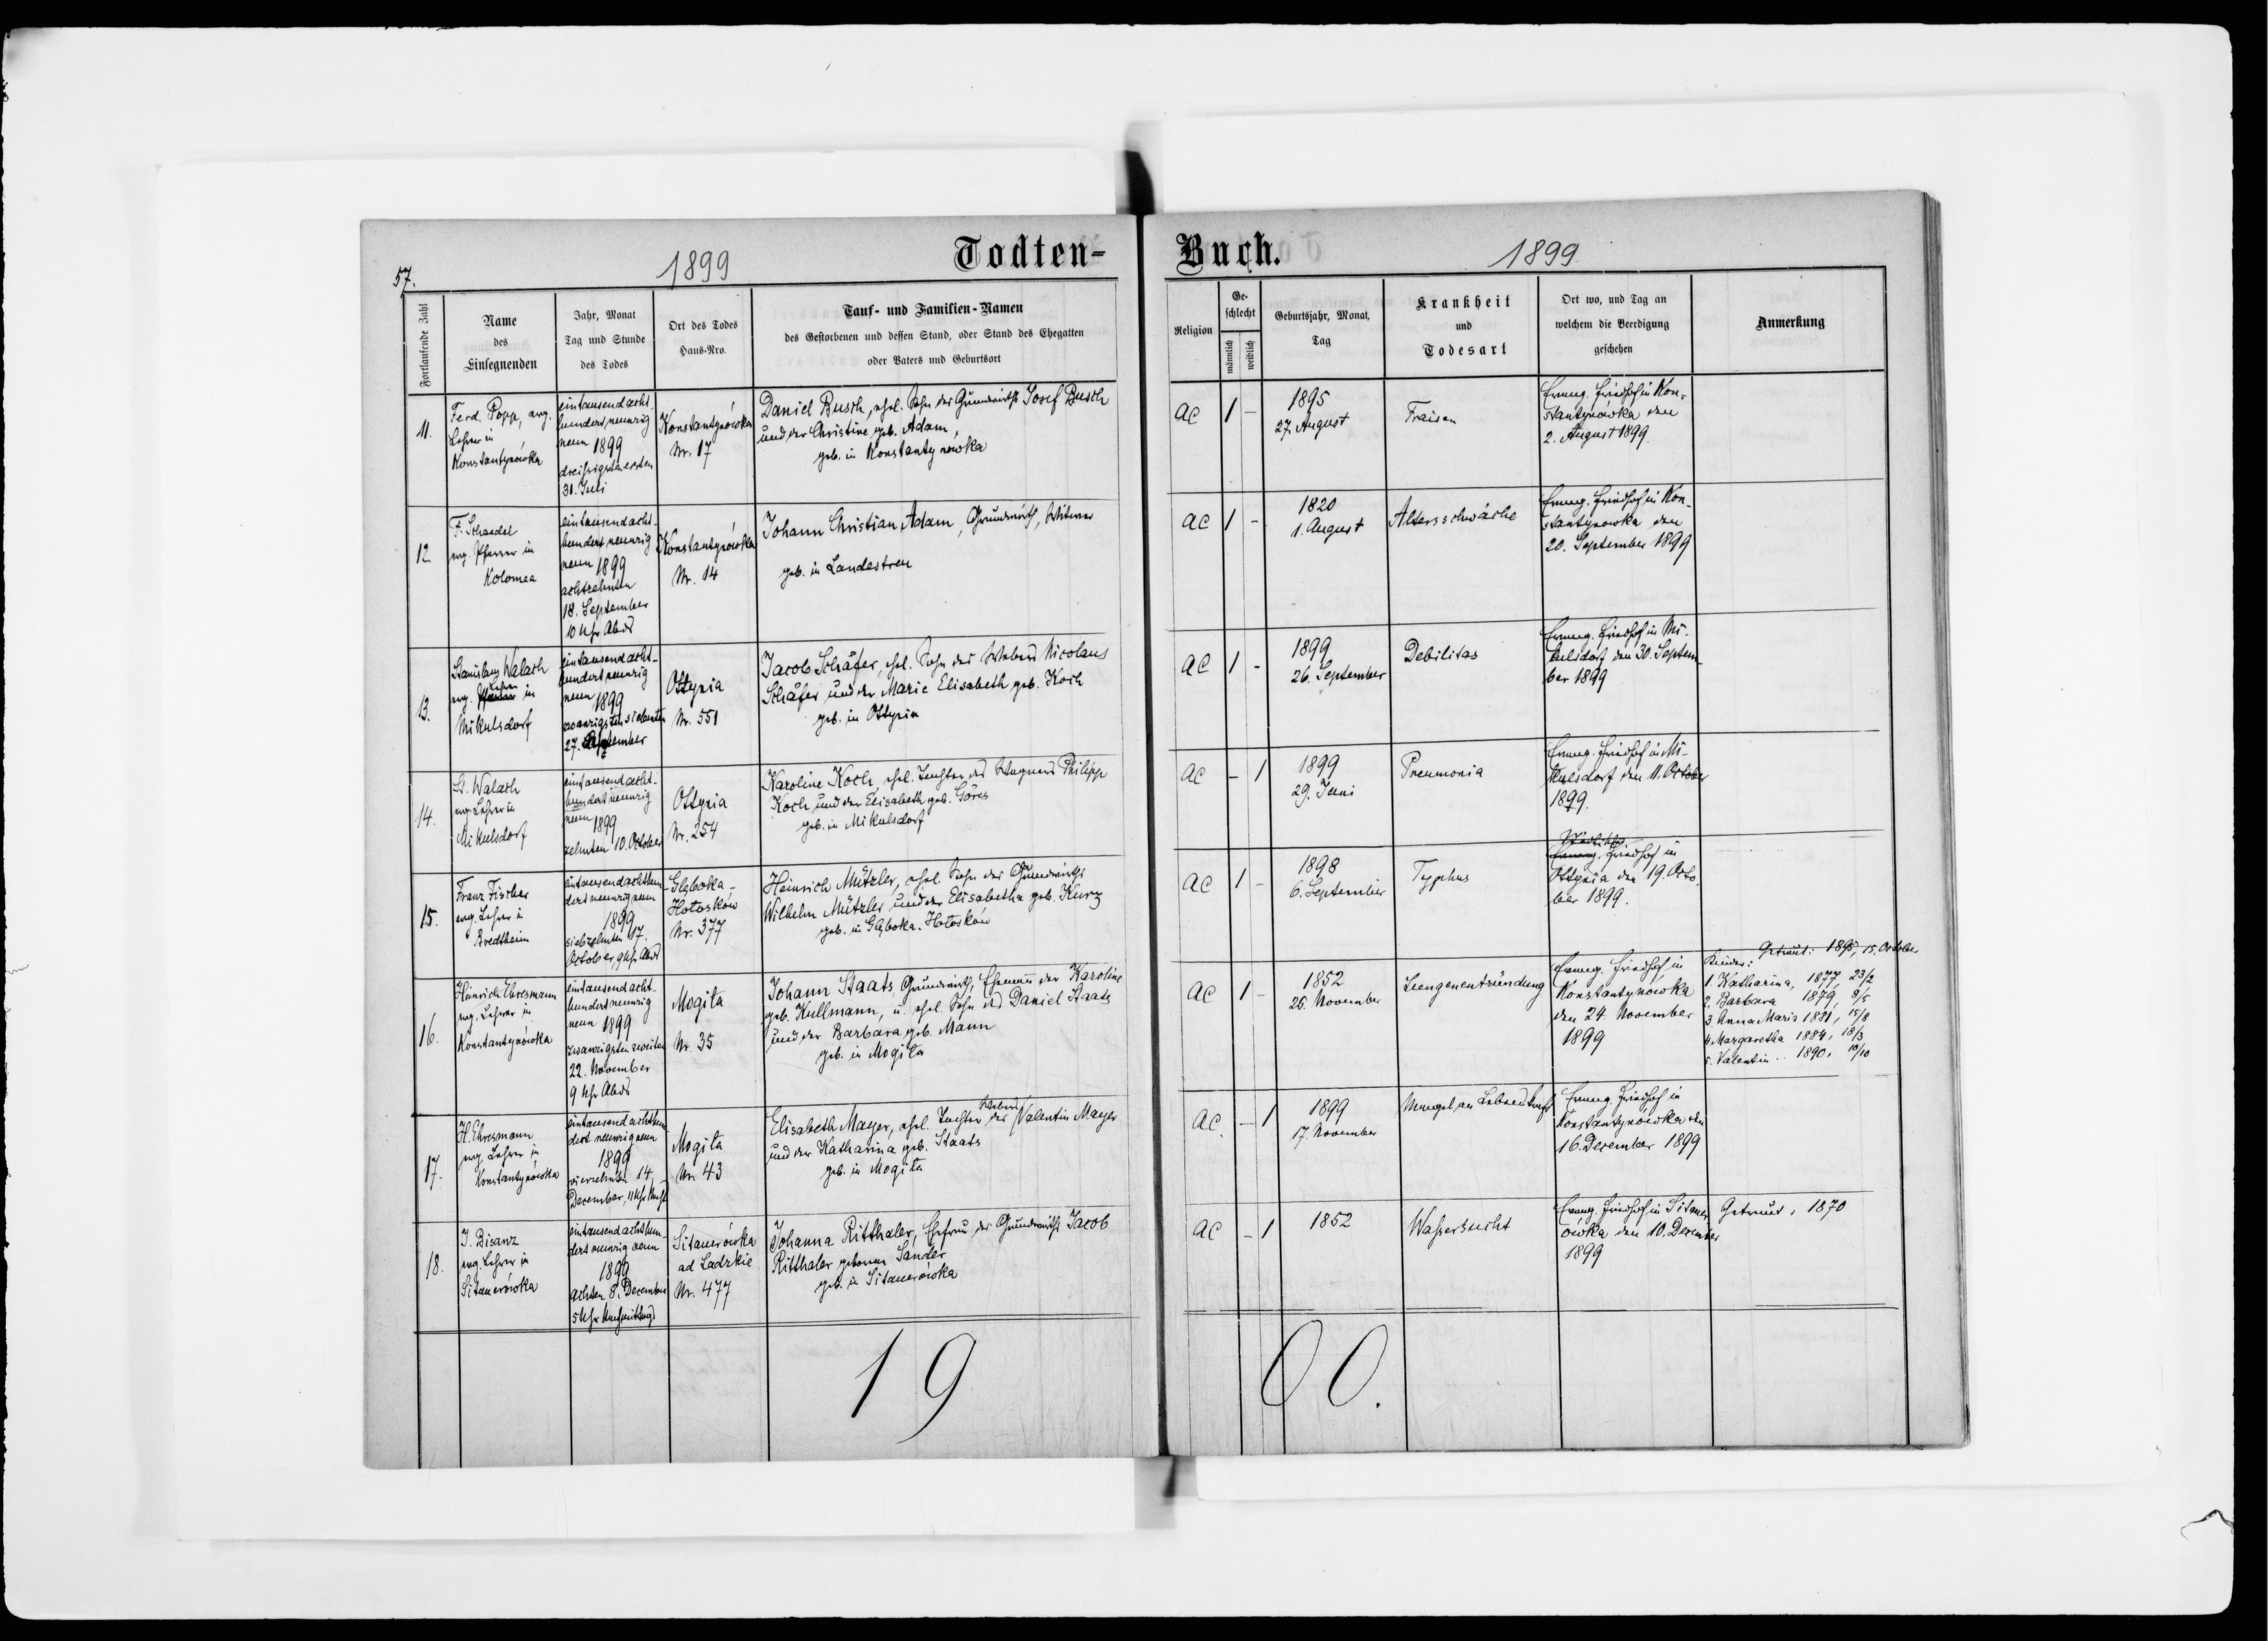 57.
1899
Todten-
Fortlaufende Zahl
Name
des
Einsegnenden
Jahr, Monat
Tag und Stunde
des Todes
Ort des Todes
Haus-Nro.
Tauf- und Familien-Namen
des Gestorbenen und dessen Stand, oder Stand des Ehegatten
oder Vaters und Geburtsort
11.
Ferd. Popp, evg.
Lehrer in
Konstantynówka
eintausend acht
hundert, neunzig
neun 1899
dreißigsten ersten
31. Juli
Konstantynówka
Nr. 17
Daniel Busch, ehel. Sohn des Grundwirths Josef Busch
und der Christine, geb. Adam,
geb. in Konstantynówka
12.
F. Schaedel
evg. Pfarrer in
Kolomea
eintausend acht-
hundert, neunzig
neun 1899
achtzehnten
18. September
10 Uhr Abds
Konstantynówka
Nr. 14
Johann Christian Adam, Grundwirth, Witwer
geb. in Landestreu
13.
Stanislaus Walach
evg. Lehrer in
Mikulsdorf
eintausend acht-
hundert neunzig
neun 1899
zwanzigsten siebenten
27. September
Ottynia
Nr. 551
Jacob Schäfer, ehel. Sohn des Webers Nicolaus
Schäfer und der Marie Elisabeth geb. Koch
geb. in Ottynia
14.
St. Walach
evg. Lehrer in
Mikulsdorf
eintausend acht-
hundert neunzig
neun 1899
zehnten 10. October
Ottynia
Nr. 254
Karoline Koch, ehel. Tochter des Wagners Philipp
Koch und der Elisabeth geb. Göres
geb. in Mikulsdorf
15.
Franz Fischer
evg. Lehrer in
Bredtheim
eintausend achthun-
dert neunzig neun
1899
siebzehnten 17.
October, 9 Uhr Abds
Głęboka-
Hotosków
Nr. 377
Heinrich Mützler, ehel. Sohn des Grundwirths
Wilhelm Mützler und der Elisabetha geb. Kurz
geb. in Głęboka-Hotosków
16.
Heinrich Ehresmann
evg. Lehrer in
Konstantynówka
eintausend acht
hundert neunzig
neun 1899
zwanzigsten zweiten
22. November
9 Uhr Abds
Mogiła
Nr. 35
Johann Staats, Grundwirth, Ehemann der Karoline
geb. Kullmann, u. ehel. Sohn des Daniel Staats
und der Barbara geb. Mann
geb. in Mogiła
17.
H. Ehresmann
evg. Lehrer in
Konstantynówka
eintausend achthun
dert neunzig neun
1899
vierzehnten 14.
December, 11 Uhr Nachts
Mogiła
Nr. 43
Elisabeth Mayer, ehel. Tochter des Webers Valentin Mayer
und der Katharina geb. Staats
geb. in Mogiła
18.
J. Bisanz
evg. Lehrer in
Sitauerówka
eintausend achthun
dert neunzig neun
1899
achten 8. December
5 Uhr Nachmittags
Sitauerówka
ad Ladzkie
Nr. 477
Johanna Ritthaler, Ehefrau des Grundwirths Jacob
Ritthaler geborene Sander
geb. in Sitauerówka
19
Buch.
1899
Religion
Ge-
schlecht
männlich
weiblich
Geburtsjahr, Monat,
Tag
Krankheit
und
Todesart
Ort wo, und Tag an
welchem die Beerdigung
geschehen
Anmerkung
AC
1
-
1895
27. August
Fraisen
Evang. Friedhof in Kon-
stantynówka den
2. August 1899
AC
1
-
1820
1. August
Altersschwäche
Evang. Friedhof in Kon-
stantynówka den
20. September 1899
AC
1
-
1899
26. September
Debilitas
Evang. Friedhof in Mi-
kulsdorf den 30. Septem-
ber 1899
AC
-
1
1899
29. Juni
Pneumonia
Evang. Friedhof in Mi-
kulsdorf den 11. October
1899.
AC
1
-
1898
6. September
Typhus
Friedhof in
Ottynia den 19. Octo-
ber 1899.
AC
1
-
1852
25. November
Lungenentzündung
Evang. Friedhof in
Konstantynówka
den 24. November
1899
Getraut: 15. October
Kinder:
1. Katharina, 1877, 23/2
2. Barbara 1879, 8/5
3. Anna Maria 1881, 15/8
4. Margaretha 1884, 18/3
5. Valentin .. 1890, 10/10
AC
-
1
1899
17. November
Mangel an Lebenskraft
Evang. Friedhof in
Konstantynówka den
16. December 1899
AC
-
1
1852
Waßersucht
Evang. Friedhof in Sitauer
ówka den 10. December
1899
Getraut, 1870
00.